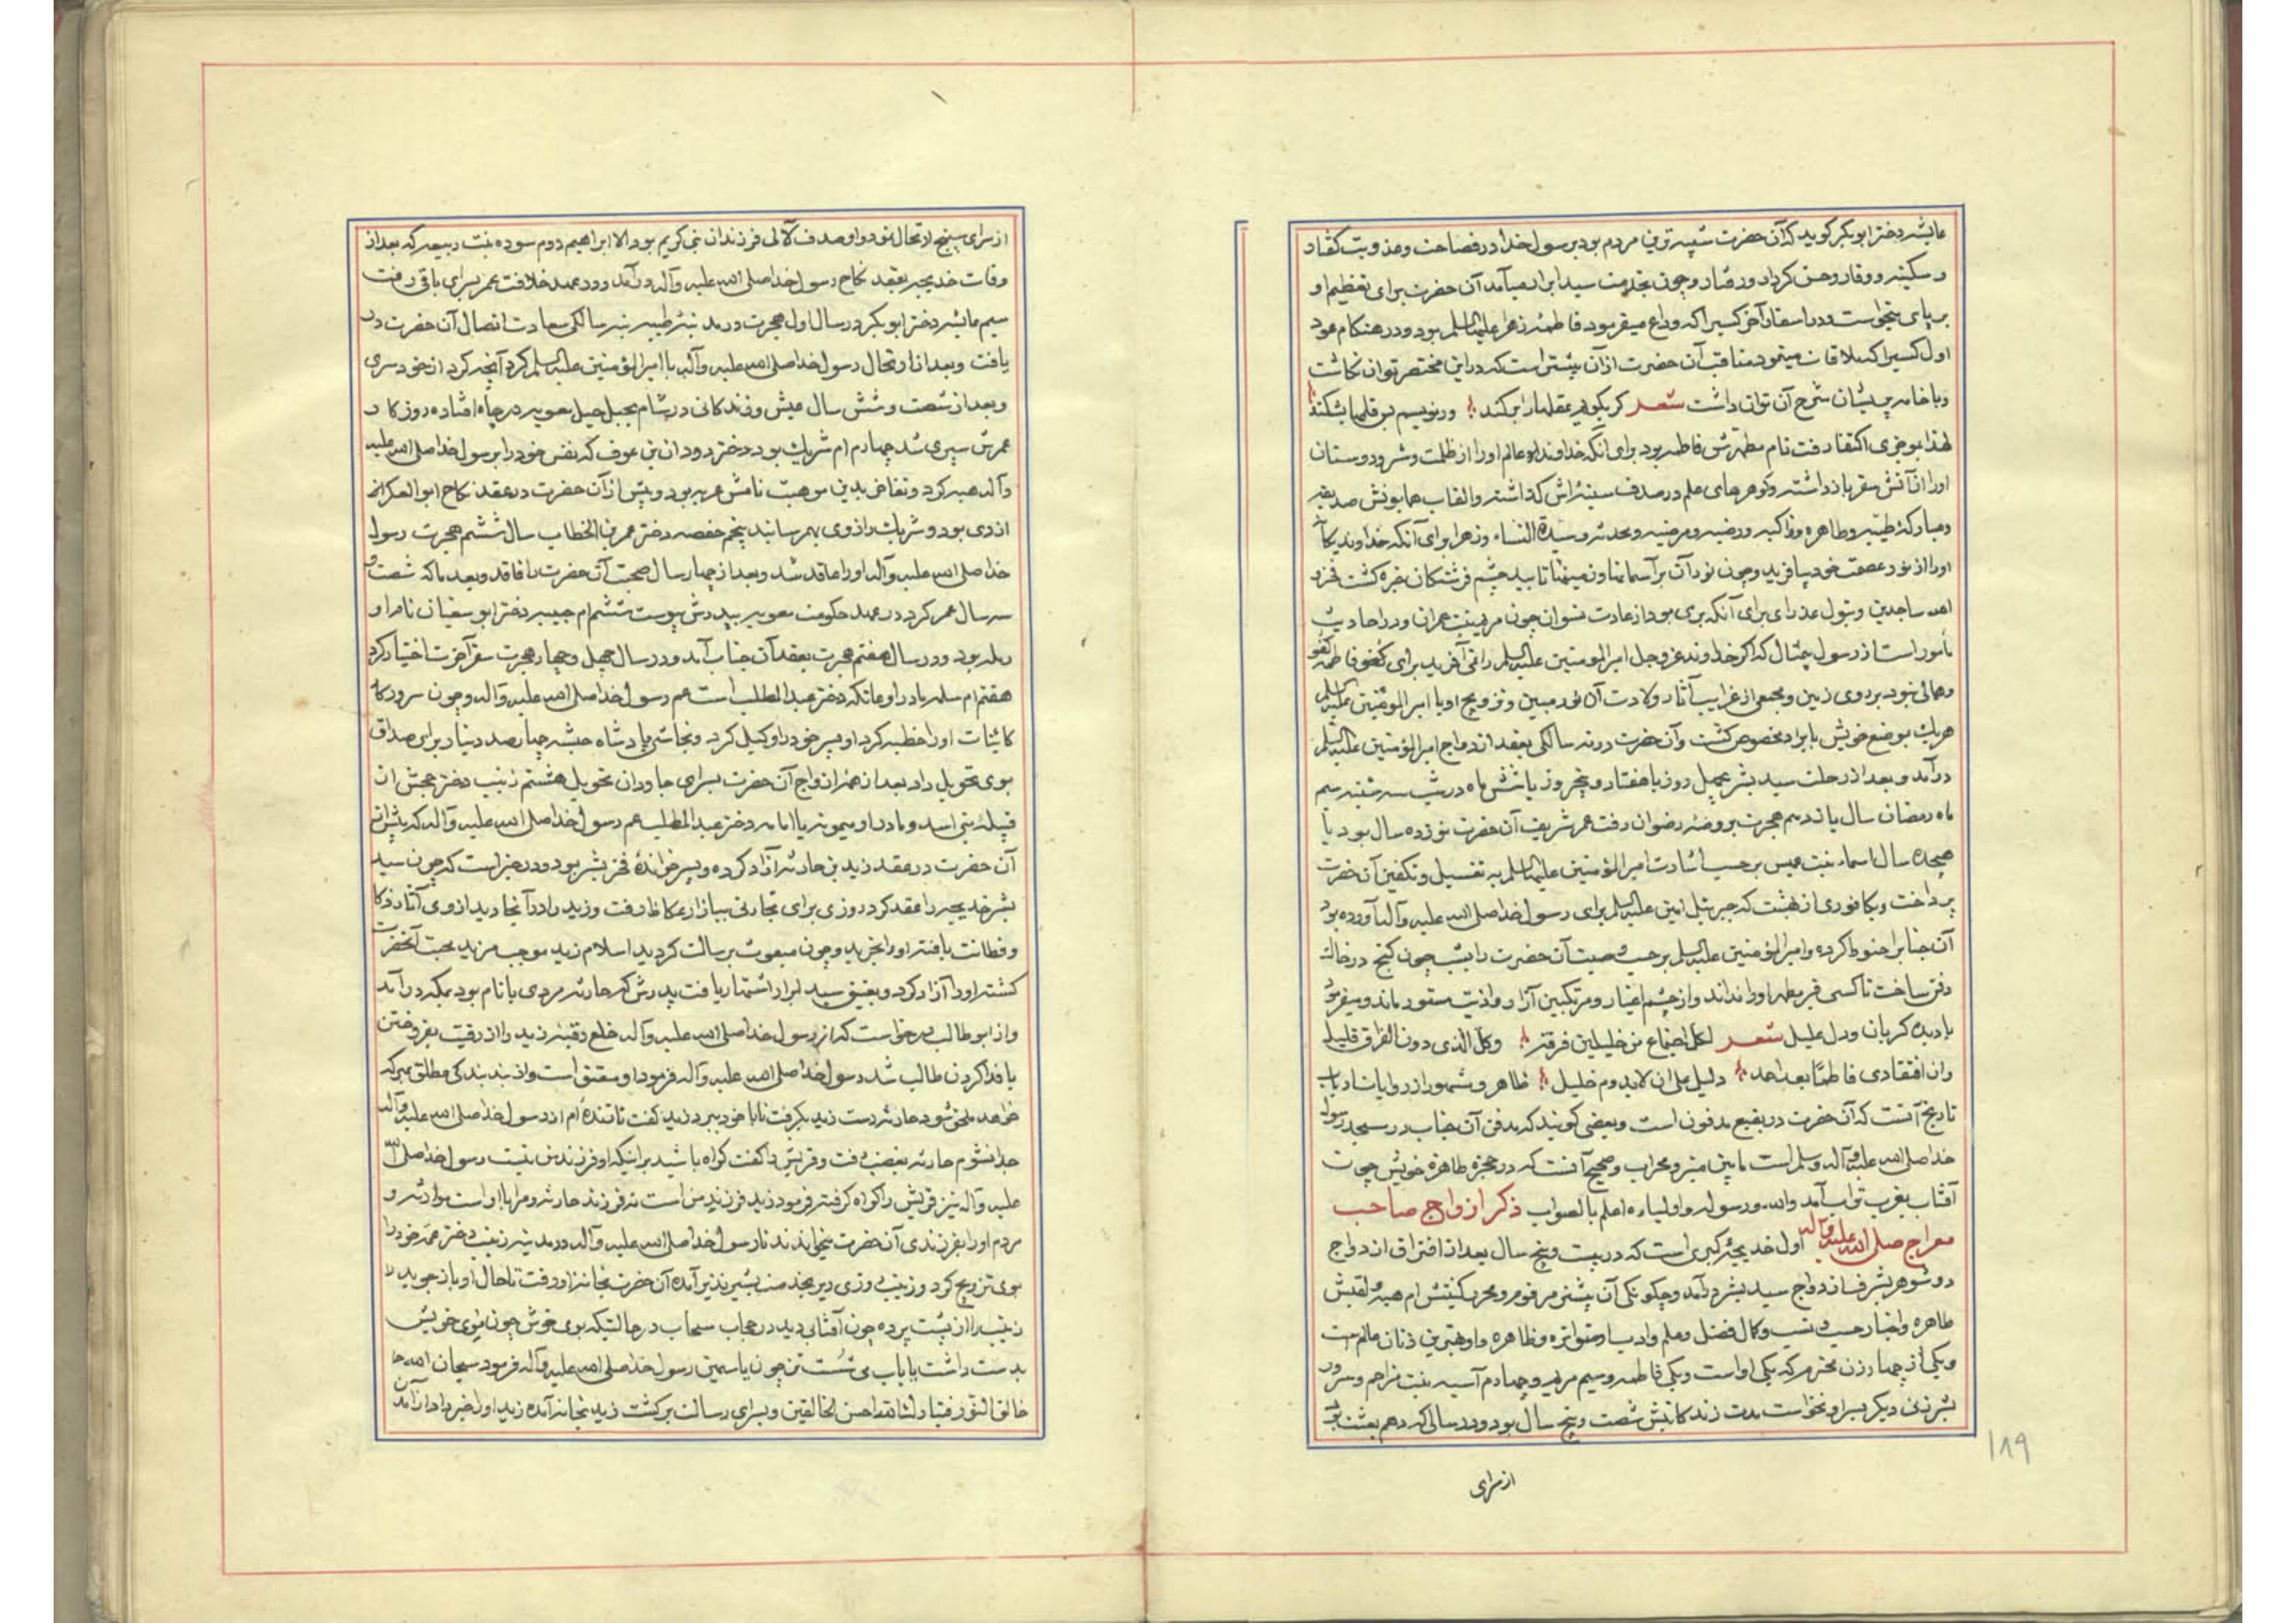 عایشه دختر ابوبکر کوید که آن حضرت شبیه ترین مردم بود برسول خدا در فصاحت و عذوبت کفتار
و سکینه و وقار و حسن کردار و رفتار و چون بخدمت سید ابرار میآمد آن حضرت برای تعظیم او
بر پای میخواست و در اسفار آخر کسیرا که وداع میفرمود فاطمهٔ زهرا علیها السلم بود و در هنکام عود
اول کسیرا که ملاقات مینمود مناقب آن حضرت از آن بیشتر است که در این مختصر توان نکاشت
و با خامه پریشان شرح آن توان داشت شعر کر بکویم عقلها را بر کند ور نویسم بس قلمها بشکند
لهذا بموجزی اکتفا رفت نام مطهرش فاطمه بود برای انکه خداوند عالم اورا از ظلمت و شرور و دوستان
اورا از آتش سقر باز داشته و کوهرهای علم در صدف سینه اش کذاشته والقاب همایونش صدیقه
و مبارکه طیبه و طاهره و زاکیه و رضیه و مرضیه و محدثه و سیدة النساء و زهرا برای آنکه خداوند یکتا
اورا از نور عصمت خود بیافرید و چون نور آن بر آسمانها و زمینها تابید چشم فرشتکان خیره کشت فخرو
لله ساجدین و بتول عذرای برای آنکه بری بود از عادت نسوان چون مریم بنت عمران و در احادیث
مأثور است از رسول متعال که اکر خداوند عز و جل امیر المومنین علیه السلم را نمی آفرید برای کفو فاطمه کفو
و همالی نبود بر روی زمین و مجمعی از غرایب آثار ولادت آن نور مبین و تزویج او با امیر المومنین علیه السلم
هریک بموضع خویش بایراد مخصوص کشت و آن حضرت در نه سالکی بعقد ازدواج امیر المؤمنین علیه السلم
درآمد و بعد از رحلت سید بشر بچهل روز یا هفتاد و پنجروز یا شش ماه در شب سه شنبه سیم
ماه رمضان سال یازدهم هجرت بروضهٔ رضوان رفت عمر شریف آن حضرت نوزده سال بود یا
هیجده سال اسماء بنت عمیس بر حسب اشارت امیر المؤمنین علیه السلم به تغسیل و تکفین آن حضرت
پرداخت و بکافوری از بهشت که جبرئیل امین علیه السلم برای رسول خدا صلی الله علیه و آله آورده بود
آن جنابرا حنوط کرده و امیر المؤمنین علیه السلم بر حسب وصیت آن حضرت را بشب چون کنج در خاک
دفن ساخت تا کسی قبر مطهر اورا نداند و از چشم اغیار و مرتکبین آزار و اذیت مستور ماند و میفرمود
با دیده کریان و دل علیل شعر لکل اجتماع من خلیلین فرقة وکل الذی دون الفراق قلیل
وان افتقادی فاطمًا بعد احمد دلیل علی ان لایدوم خلیل ظاهر و مشهور از روایات ارباب
تاریخ آنست که آن حضرت در بقیع مدفون است و بعضی کویند که مدفن آن جناب در مسجد رسول
خدا صلی الله علیه و آله وسلم است مابین منبر و محراب و صحیح آنست که در حجرهٔ طاهرهٔ خویش چون
آفتاب بغرب تواب آمد والله ورسوله واولیاءه اعلم بالصواب ذکر ازواج صاحب
معراج صلی الله علیه وآله اول خدیجهٔ کبری است که در بیست و پنج سال بعد از افتراق ازدواج
دو شوهر بشرف ازدواج سید بشر درآمد و چکونکی آن پیشتر مرقوم و محرر کنیتش ام هند و لقبش
طاهره و اخبار حسب و نسب و کمال فضل و علم و ادب او متواتره و ظاهره و او بهترین زنان عالم است
و یکی از چهار زن محترم که یکی او است و یکی فاطمه و سیم مریم و چهارم آسیه بنت مزاحم و سرور
بشر زنی دیکر بسر او نخواست مدت زندکانیش شصت و پنج سال بود و در سالی که دهم بعثت بود
از سرای
۱۸۹
از سرای سپنج ارتحال نمود و او صدف لآلی فرزندان نبی کریم بود الا ابراهیم دوم سوده بنت ربیعه که بعد از
وفات خدیجه بعقد نکاح رسول خدا صلی الله علیه وآله درآمد و در عهد خلافت عمر بسرای باقی رفت
سیم عایشه دختر ابوبکر در سال اول هجرت در مدینهٔ طیبه بنه سالکی سعادت اتصال آن حضرت در
یافت و بعد از ارتحال رسول خدا صلی الله علیه وآله با امیر المؤمنین علیه السلم کرد آنچه کرد از خود سری
و بعد از شصت و شش سال عیش و زندکانی در شام بحیل معویه در چاه افتاده روزکار
عمرش سپری شد چهارم ام شریک بود دختر دودان بن عوف که نفس خود را برسول خدا صلی الله علیه
وآله هبه کرد و نامش غزیه بود و پیش از آن حضرت در عقد نکاح ابو العکر
ازدی بود و شریک را از وی بهمرسانید پنجم حفصه دختر عمر بن الخطاب سال ششم هجرت رسول
خدا صلی الله علیه وآله اورا عاقد شد و بعد از چهار سال صحبت آن حضرت را فاقد و بعد ما که شصت و
سه سال عمر کرد در عهد حکومت معویه بپدرش پیوست ششم ام حبیبه دختر ابو سفیان نام او
رمله بود و در سال هفتم هجرت بعقد آن جناب آمد و در سال چهل و چهار هجرت سفر آخرت اختیار کرد
هفتم ام سلمه مادر او عاتکه دختر عبد المطلب است عم رسول خدا صلی الله علیه وآله و چون سرور
کائنات اورا خطبه کرد او پسر خود را وکیل کرد و نجاشی پادشاه حبشه چهارصد دینار برای صداق
بوی تحویل داد بعد از همه ازواج آن حضرت بسرای جاودان تحویل هشتم زینب دختر جحش از
قبیلهٔ بنی اسد و مادر او میمونه یا امامه دختر عبد المطلب عم رسول خدا صلی الله علیه وآله که پیش از
آن حضرت در عقد زید بن حارثه آزاد کرده و پسر خواندهٔ فخر بشر بود و در خبر است که چون سید
بشر خدیجه را عقد کرد روزی برای تجارتی ببازار عکاظ رفت و زید را در آنجا دید از وی آثار ذکا
و فطانت یافته اورا بخرید و چون مبعوث برسالت کردید اسلام زید موجب مزید محبت آنحضرت
کشته اورا آزاد کرد و بعتیق سید ابرار اشتهار یافت پدرش که حارثه مردی با نام بود بمکه درآمد
و از ابو طالب درخواست که از رسول خدا صلی الله علیه وآله خلع رقبهٔ زید را از رقیت بفروختن
یا فدا کردن طالب شد رسول خدا صلی الله علیه وآله فرمود او معتق است و از بند بندکی مطلق بهر که
خواهد ملحق شود حارثه دست زید بکرفت تا با خود ببرد زید کفت تا زنده ام از رسول خدا صلی الله علیه وآله
جدا نشوم حارثه بغضب رفت و قریش را کفت کواه باشید بر اینکه او فرزند من نیست رسول خدا صلی الله
علیه وآله نیز قریش را کواه کرفته فرمود زید فرزند من است نه فرزند حارثه و مرا با او است موارثه و
مردم اورا بفرزندی آن حضرت میخواندند تا رسول خدا صلی الله علیه وآله در مدینه زینب دختر عمه خود را
بوی تزویج کرد و زینب روزی دیر بخدمت بشیر نذیر آمده آن حضرت بخانه او رفت تا حال او باز جوید
زینب را از پشت پرده چون آفتابی دید در حجاب سحاب در حالتیکه بوی خوش چون موی خویش
بدست داشت یا باب می شست تن چون یاسمین رسول خدا صلی الله علیه وآله فرمود سبحان الله
خالق النور فتبارك الله احسن الخالقین و بسرای رسالت برکشت زید بخانه آمده زید اورا خبر داد از آمدن